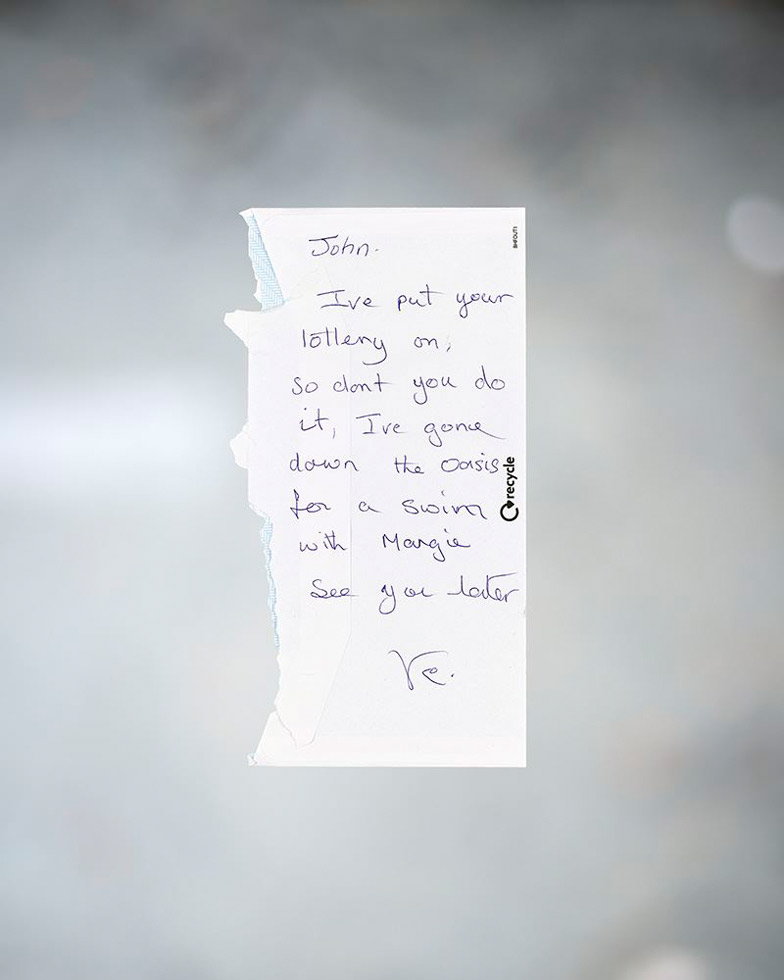 John.
Ive put your
lottery on,
so dont you do
it, Ive gone
down the Oasis
for a swim
with Margie
See you later
Ve.
recycle